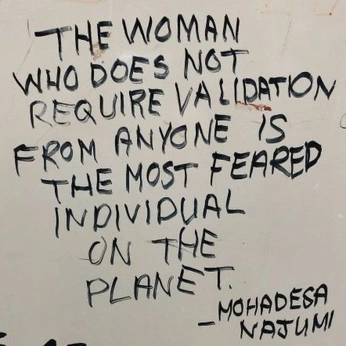 THE WOMAN
WHO DOES NOT
REQUIRE VALIDATION
FROM ANYONE IS
THE MOST FEARED
INDIVIDUAL
ON THE
PLANET.
-MOHADESA
NAJUMI